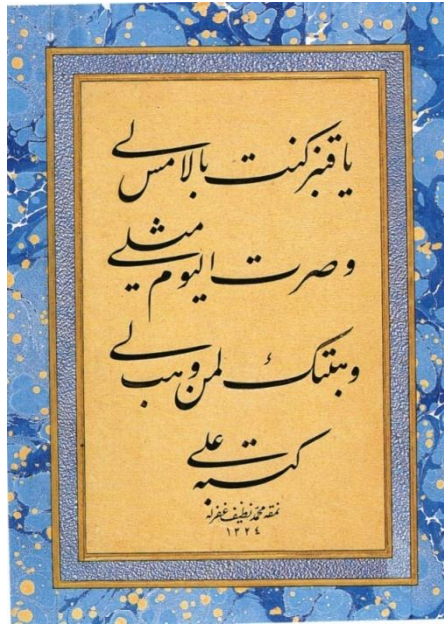 يا قنبر كنت بالامس لي
وصرت اليوم مثلي
وهبتك لمن وهب لي
كتبه علي
نمقه محمد نظيف غفر له
١٣٢٤